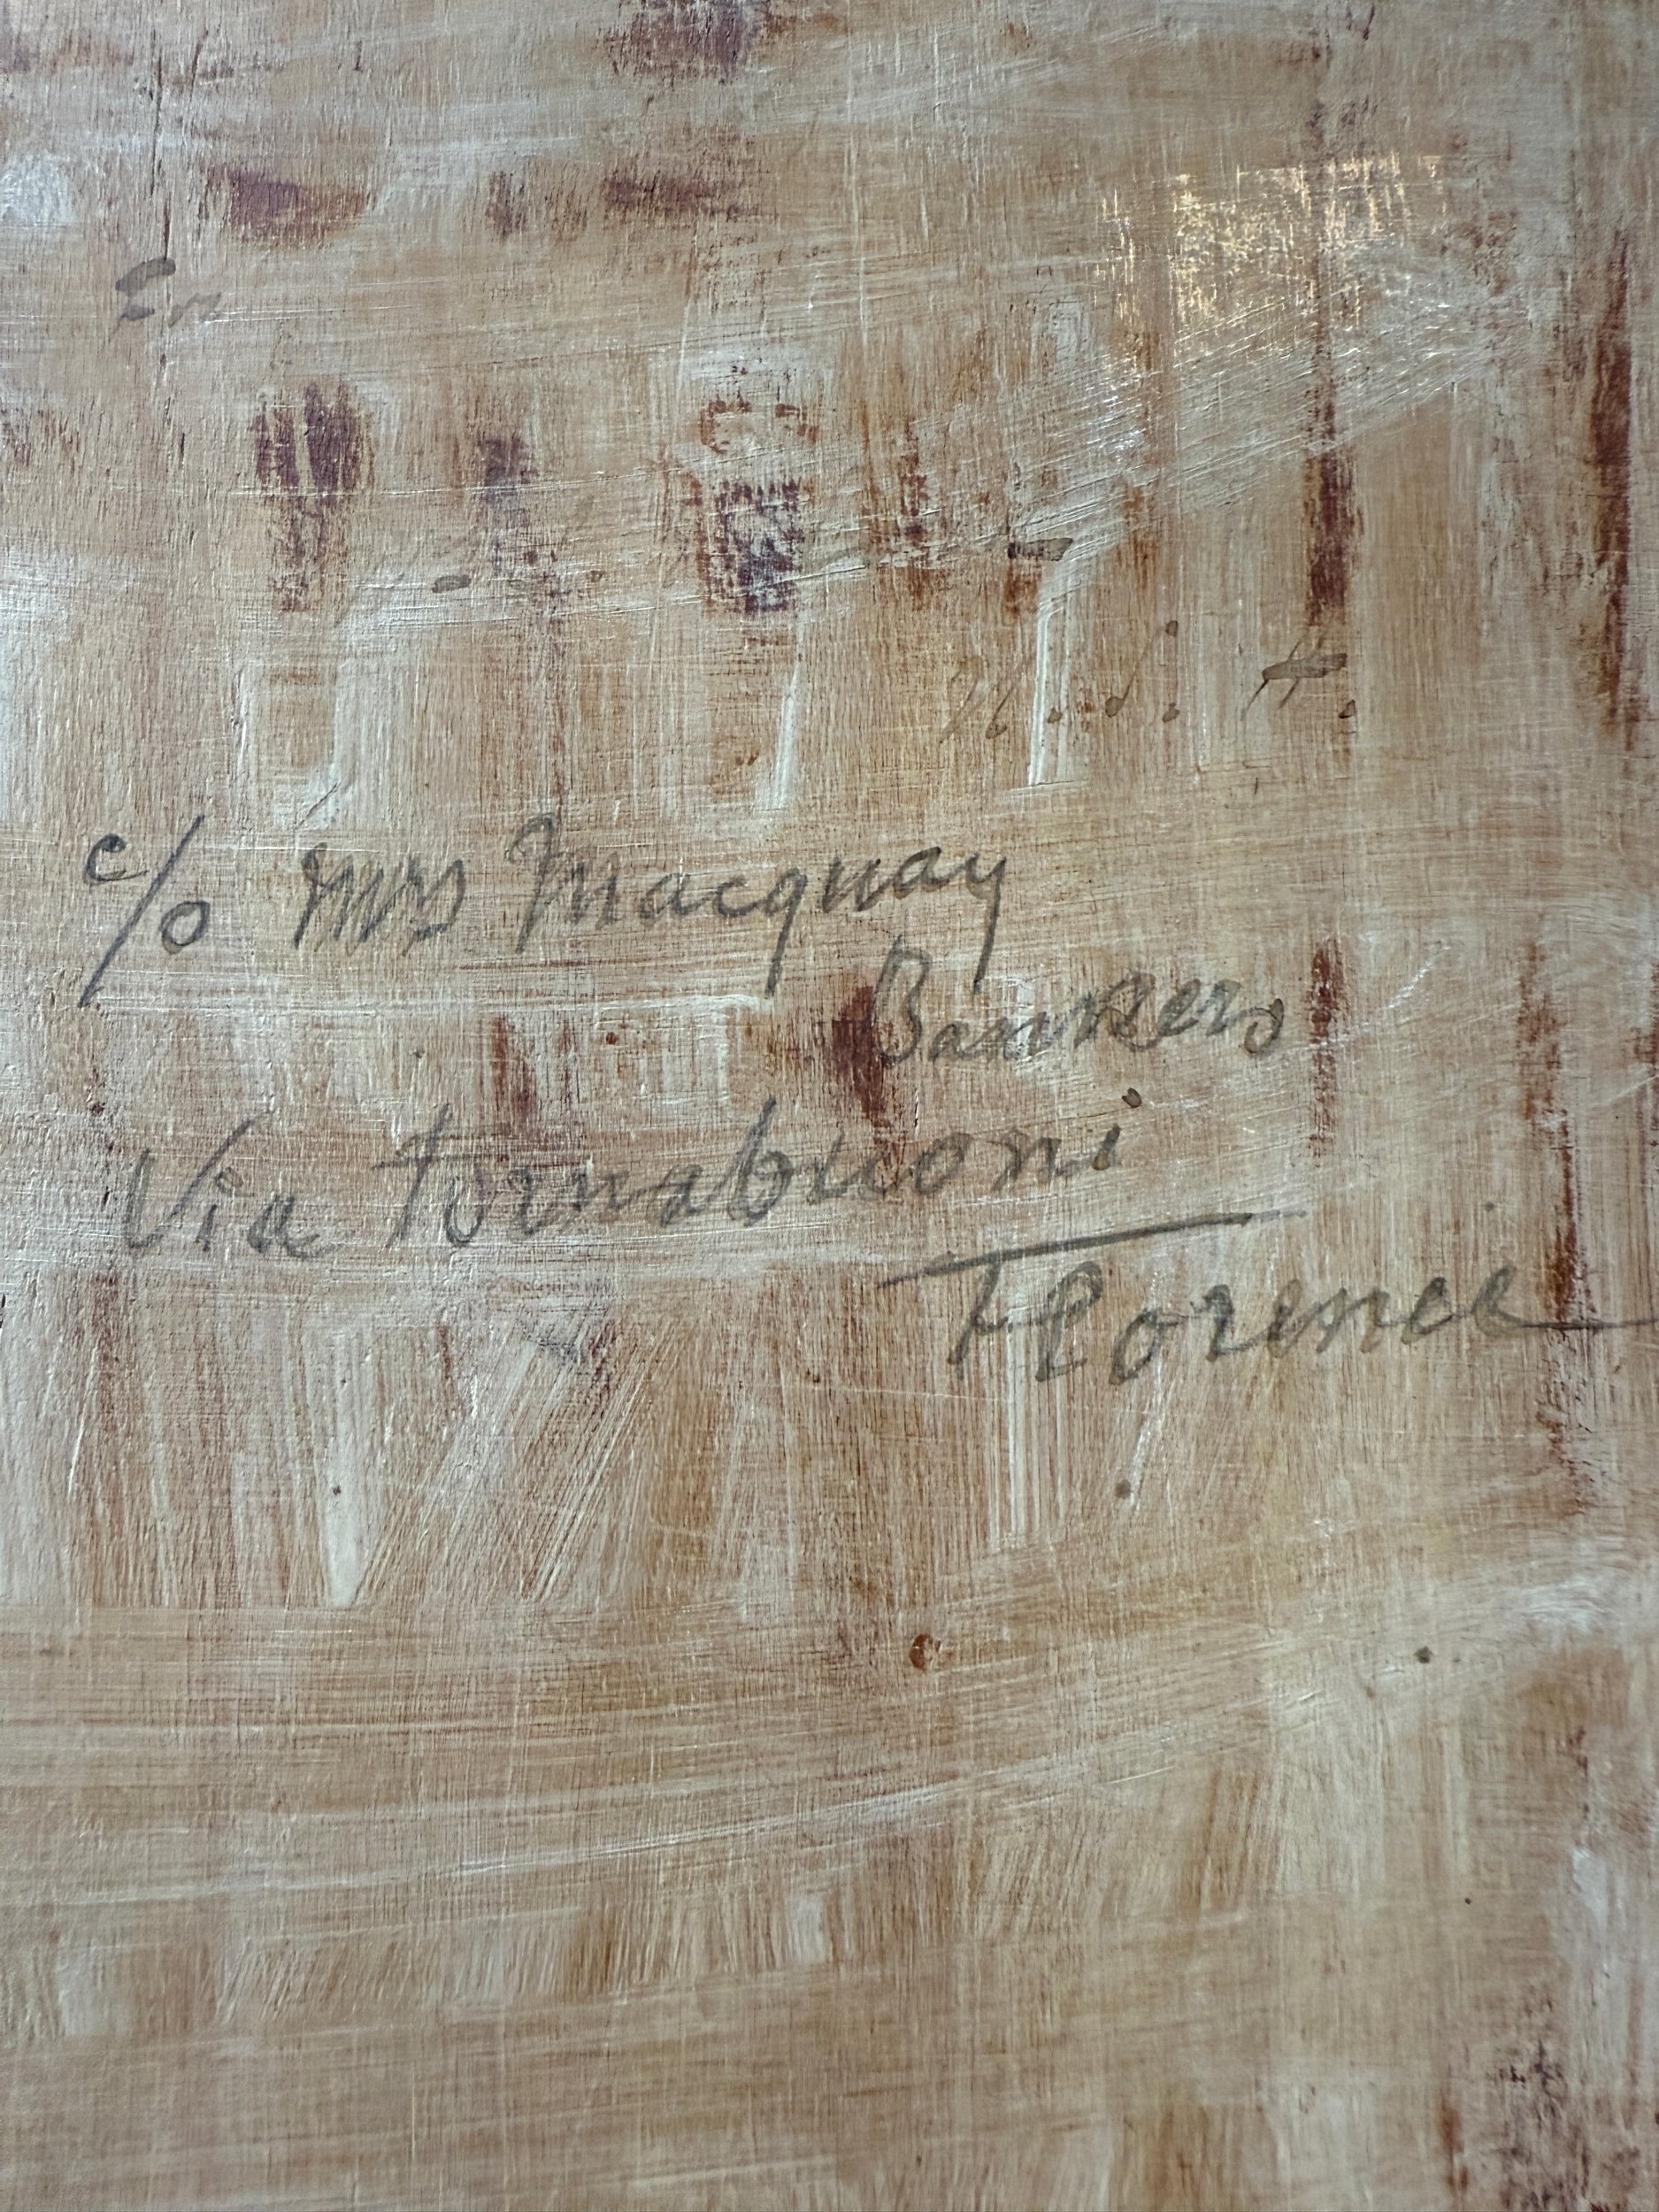 En
U.S.A.
c/o Mrs Macquay
Bankers
Via Tornabuoni
Florence